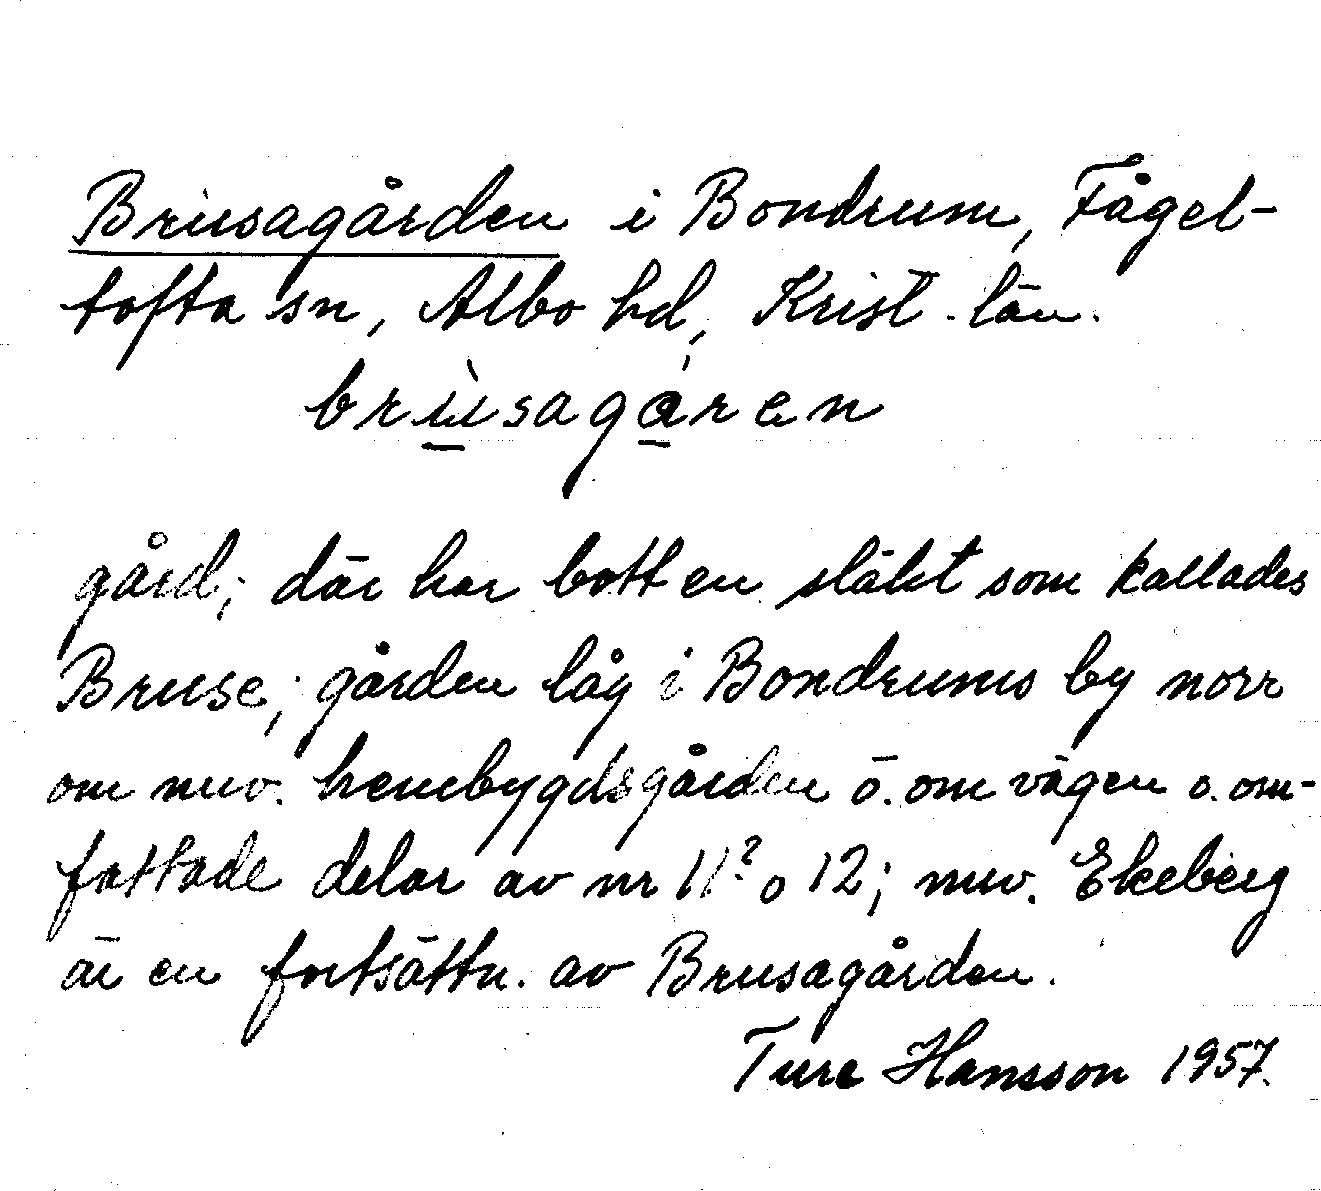 Brusagården i Bondrum, Fågel-
tofta sn, Albo hd, Krist. län.
brùsagáren
gård; där har bott en släkt som kallades
Bruse; gården låg i Bondrums by norr
om nuv. hembygdsgården ö. om vägen o. om-
fattade delar av nr 11? o 12; nuv. Ekeberg
är en fortsättn. av Brusagården.
Ture Hansson 1957.